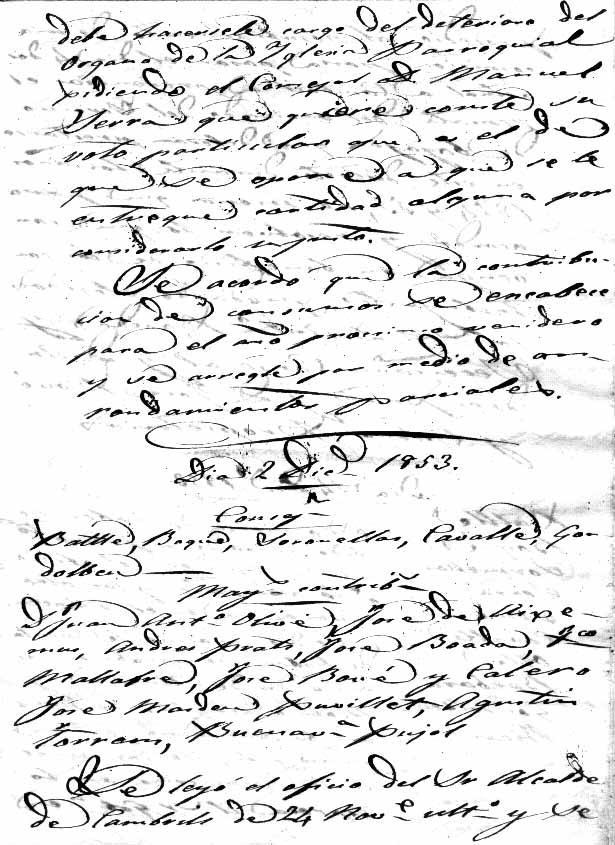 debe hacersele cargo del deterioro del
Organo de la Yglesia Parroquial
pidiendo el Concejal D. Manuel
Serra que quiere conste su
voto particular que es el de
que se opone a que se le
entregue cantidad alguna por
considerarlo injusto.
Se acordó que la contribu-
cion de consumos se encabece
para el año procsimo venidero
y se arregle por medio de arr-
rendamientos parciales.
Dia 2 Dic.e 1853.
Concej.s
Batlle, Boqué, Soronellas, Cavallé, Gon
dolbeu
May.s contrib.s
D. Juan Ant.o Olivé, José de
mus, Andres Prats, José Boada, Fco
Mallafré, José Boné y Calero
José Maria Puvillet, Agustin
Torrens, Buenav.a Pujol
Se leyó el oficio del Sr Alcalde
de Cambrils de 24 Nov.e ult.o y se